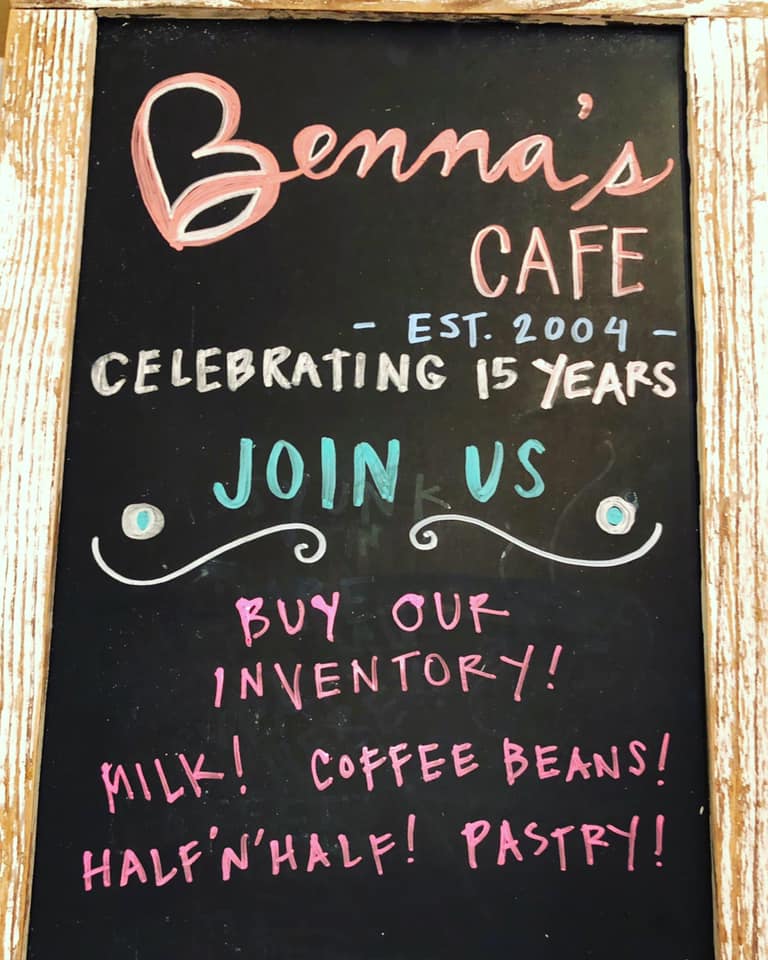 Benna's
CAFE
- EST. 2004 -
CELEBRATING 15 YEARS
JOIN US
BUY OUR
INVENTORY!
MILK! COFFEE BEANS!
HALF'N'HALF! PASTRY!